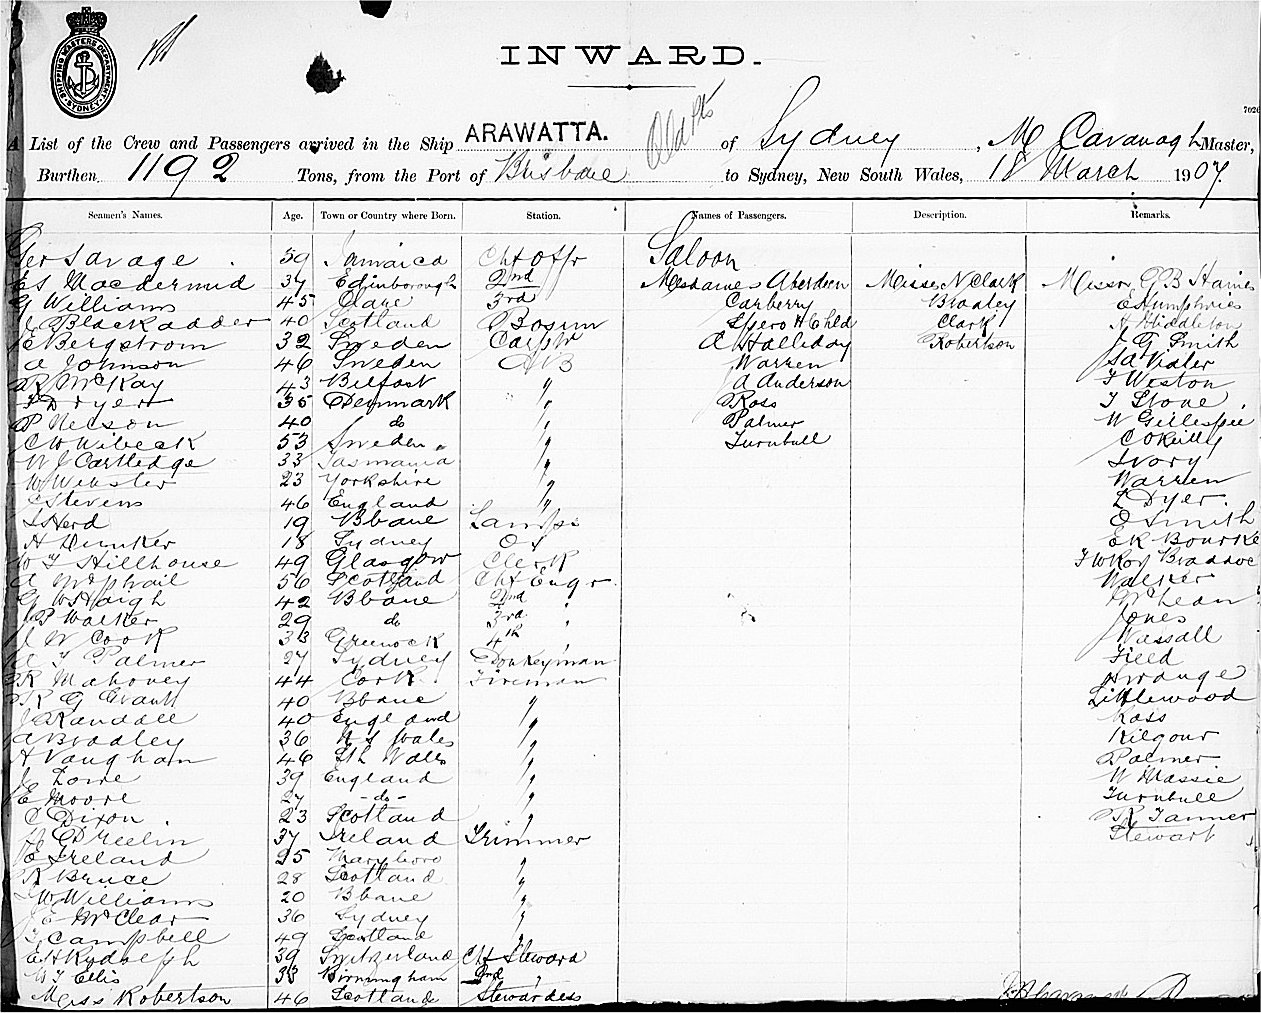 INWARD.
SHIPPING MASTERS DEPARTMENT SYDNEY
A List of the Crew and Passengers arrived in the Ship ARAWATTA. of Sydney, M Cavanagh Master,
Burthen 1192 Tons, from the Port of Brisbane to Sydney, New South Wales, 18 March 1907.
Seamen's Names. Age. Town or Country where Born. Station. Names of Passengers. Description. Remarks.
Geo Savage 59 Jamaica Cht Offr Saloon
E S Macdermid 37 Edinborough 2nd Mesdames Aberdeen Misses N Clark Messrs G B Haines
G Williams 45 Clare 3rd Carberry Bradley E Humphries
J Blackadder 40 Scotland Bosun Spero & Chld Clark H Middleton
E Bergstrom 32 Sweden Carptr A Halliday Robertson J G Smith
A Johnson 46 Sweden AB Warren Vidler
R McKay 43 Belfast " J A Anderson F Weston
F Dryer 35 Denmark " Ross T Stone
P Nelson 40 do " Palmer W Gillespie
C W Wibeck 53 Sweden " Turnbull C O'Reilly
W J Cartledge 33 Tasmania " Ivory
W Webster 23 Yorkshire " Warren
C Stevens 46 England " L Dyer
S Herd 19 Bbane Lamps O Smith
H Dunker 18 Sydney OS E K Bourke
W T Hillhouse 49 Glasgow Clerk
A McPhail 56 Scotland Cht Engr Walker
G W Haigh 42 Bbane 2nd " McLean
J P Walker 29 do 3rd " Jones
J W Cook 33 Greenock 4th " Wassall
A T Palmer 27 Sydney Donkeyman Field
R Mahoney 44 Cork Fireman
R G Grant 40 Bbane " Littlewood
J A Randall 40 England " Ross
A Bradley 36 N S Wales " Kilgour
H Vaughan 46 Sth Wales " Palmer
J Lowe 39 England " W Massie
E Moore 27 -do- " Turnbull
C Dixon 23 Scotland " R Tanner
37 Ireland Trimmer Stewart
E Ireland 25 Maryboro "
R Bruce 28 Scotland "
W Williams 20 Bbane "
J E McClear 36 Sydney "
J Campbell 49 Scotland "
E H Rudolph 39 Switzerland Cht Steward
W T Ellis 33 Birmingham 2nd "
Miss Robertson 46 Scotland Stewardess